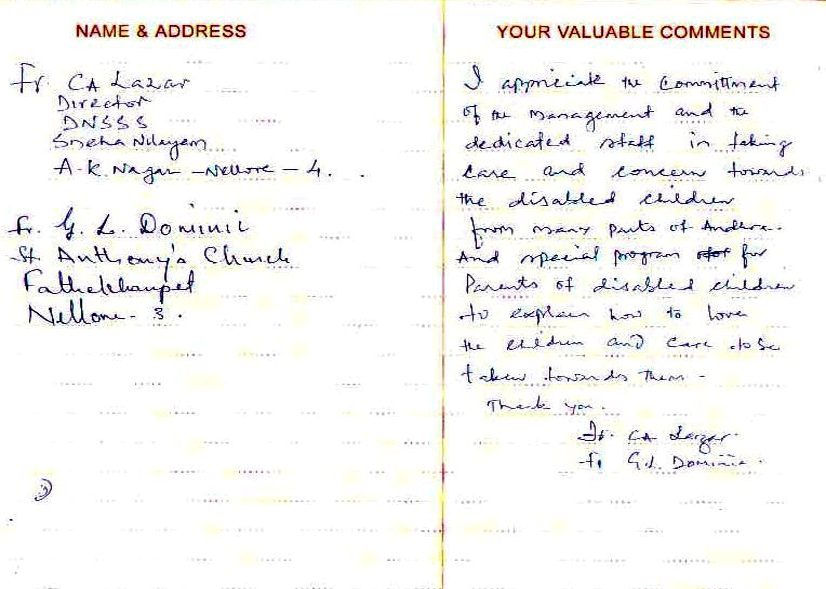 NAME & ADDRESS
Fr. CA Lazar
Director
DNSSS
Sneha Nilayam
A.K. Nagar - Nellore - 4.
Fr. G. L. Dominic
St Anthony's Church
Fathekhanpet
Nellore - 3.
YOUR VALUABLE COMMENTS
I appriciate the Commitment
of the management and the
dedicated staff in taking
care and concern towards
the disabled children
from many parts of Andhra.
And special program for
Parents of disabled children
to explain how to love
the children and care to be
taken towards them -
Thank you.
Fr. CA Lazar.
Fr G.L. Dominic.